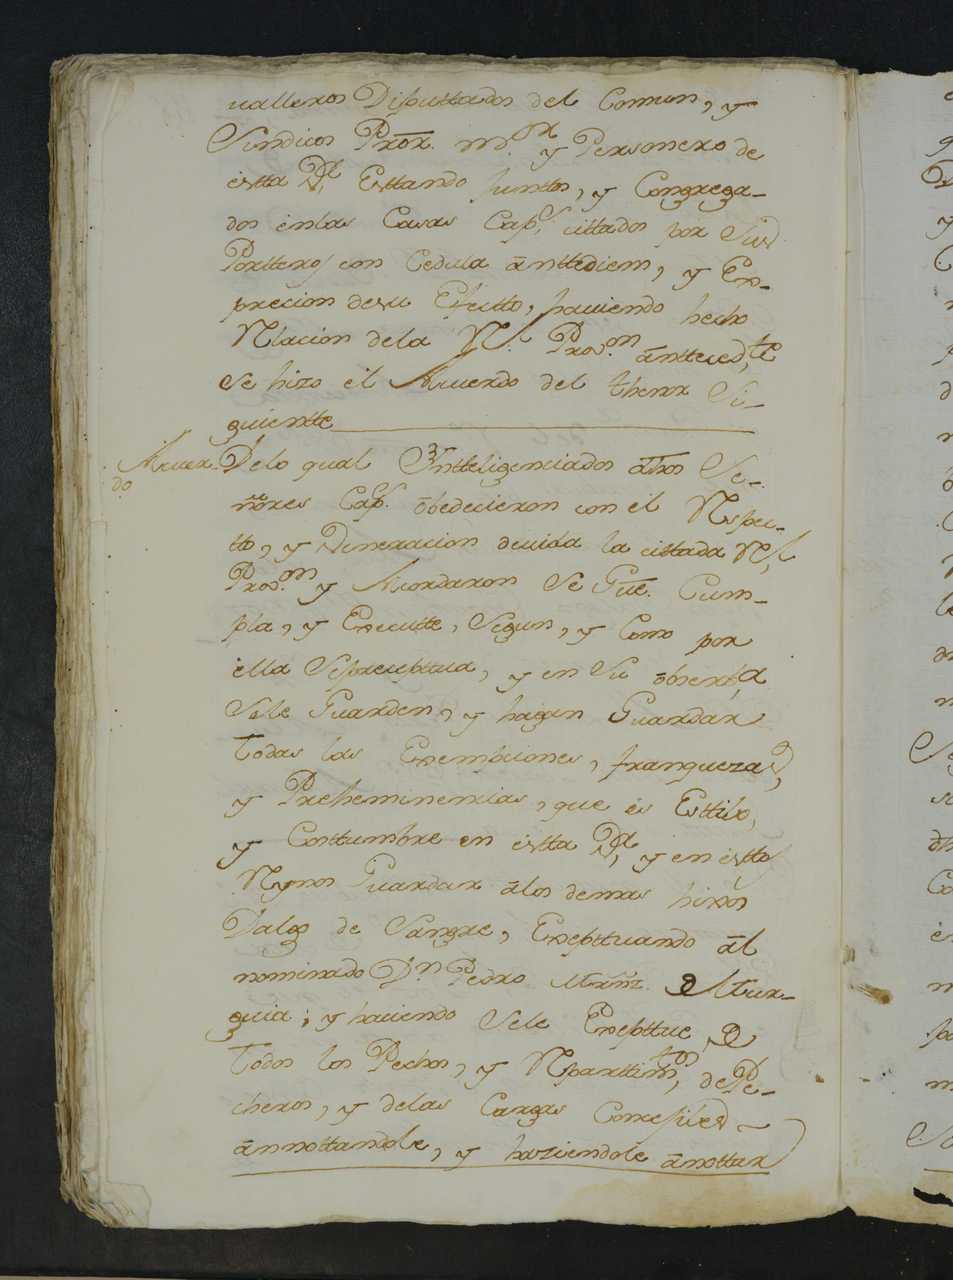 valleros Diputtados del Comun, y
Sindicos Pror. mor. y Personero de
estta Vª. Esttando juntos, y Congrega-
dos en las Casas Caps. cittados por Sus
Portteros con Cedula anttediem, y En-
precion de su Efectto, haviendo hecho
Rlacion de la Rl. Proon. anttecedte
se hizo el Acuerdo del thenor Si-
guientte
Acuer-
do
Delo qual Intteligenciados dhos Se-
ñores Caps. obedecieron con el Respec-
tto, y Veneracion devida la cittada Rl.
Proon. y Acordaron Se Gue. Cum-
pla, y Executte, Segun, y Como por
ella Se preceptua, y en Su obserba
Sele Guarden, y hagan Guardar
todas las Exempciones, franquezas,
y Preheminencias, que es Esttilo,
y Costtumbre en estta Vª, y en esttos
Reynos Guardar a los demas hixos
Dalgo de Sangre, Exepttuando al
nominado Dn. Pedro Mrñz. de Mur-
guia; y haviendo Sele Exepttue de
todos los Pechos, y Reparttimtos. de Pe-
cheros, y delas Cargas Concejiles
annottandole, y haziendole anottar